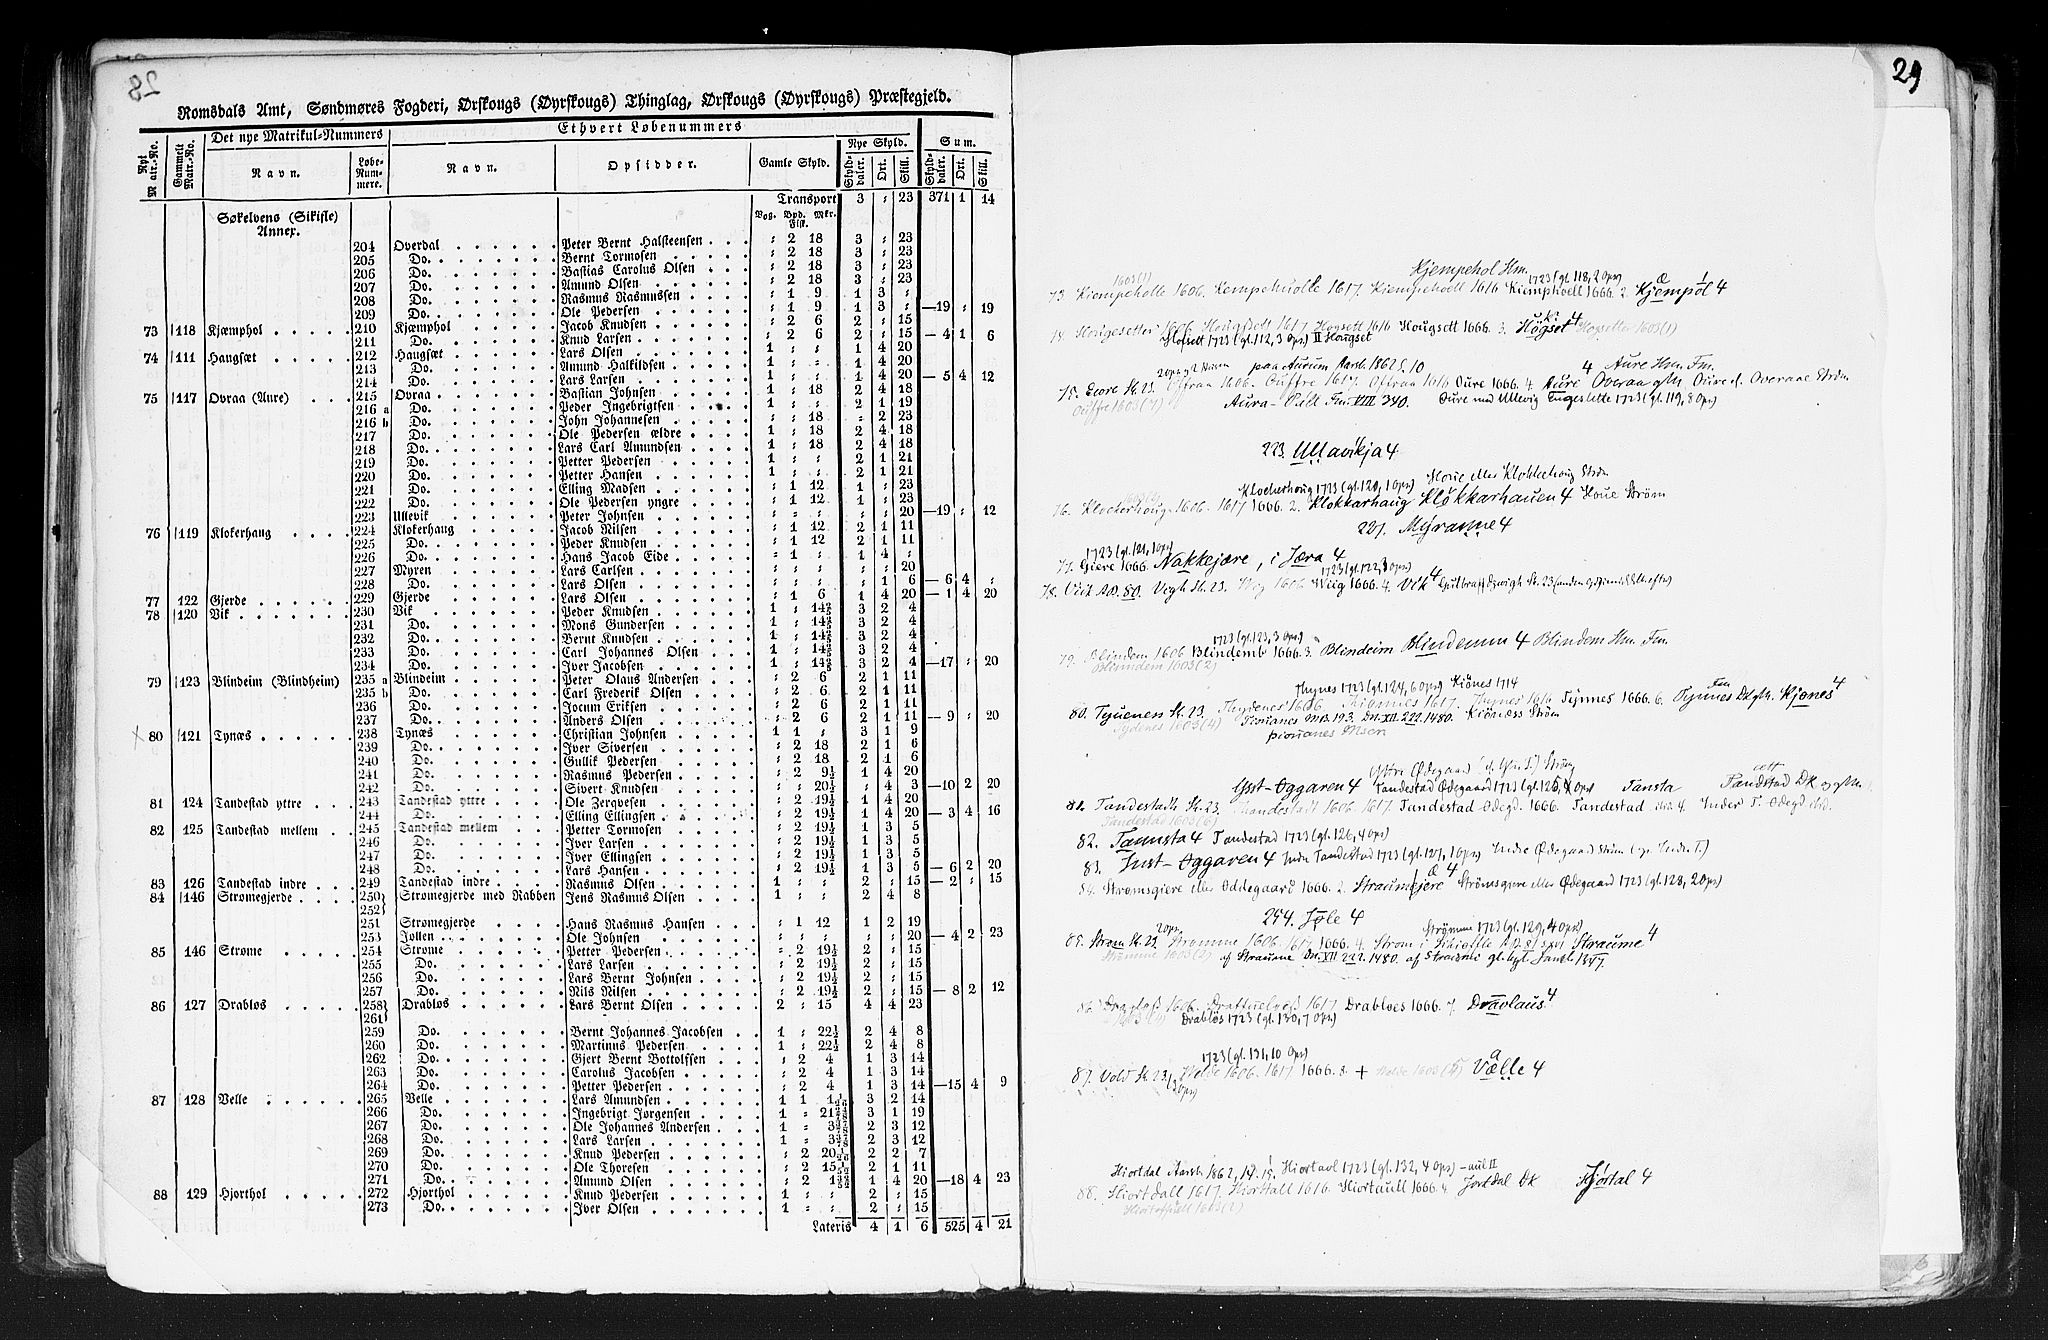 28
Romsdals Amt, Søndmøres Fogderi, Ørskougs (Øyrskougs) Thinglag, Ørskougs (Øyrskougs) Præstegjeld.
Nyt Matr.-No. Gammelt Matr.-No. Det nye Matrikul-Nummers Ethvert Løbenummers
Navn. Løbe-Nummere. Navn. Opsidder. Gamle Skyld. Nye Skyld. Sum.
Skylddaler. Ort. Skill. Skylddaler. Ort. Skill.
Transport 3 : 23 371 1 14
Søkelvens (Sikifle) Annex. Vog. Bpd. Mkr. Fisk.
204 Overdal Peter Bernt Halsteensen : 2 18 3 : 23
205 Do. Bernt Tormosen : 2 18 3 : 23
206 Do. Bastias Carolus Olsen : 2 18 3 : 23
207 Do. Amund Olsen : 2 18 3 : 23
208 Do. Rasmus Rasmussen : 1 9 1 3 :
209 Do. Ole Pedersen : 1 9 1 3 : —19 : 19
73 118 Kjæmphol 210 Kjæmphol Jacob Knudsen : 2 6 2 : 15
211 Do. Knud Larsen : 2 6 2 : 15 — 4 1 6
74 111 Haugsæt 212 Haugsæt Lars Olsen 1 : : 1 4 20
213 Do. Amund Halkildsen 1 : : 1 4 20
214 Do. Lars Larsen 1 : : 1 4 20 — 5 4 12
75 117 Ovraa (Aure) 215 Ovraa Bastian Johnsen 1 : 18 2 4 18
216 a Do. Peder Ingebrigtsen 1 : : 2 1 19
216 b Do. John Johannesen : : 18 : 2 23
217 Do. Ole Pedersen ældre 1 : 18 2 4 18
218 Do. Lars Carl Amundsen 1 : 18 2 4 18
219 Do. Petter Pedersen 1 : : 2 1 21
220 Do. Petter Hansen 1 : : 2 1 21
221 Do. Elling Madsen : 1 12 1 : 23
222 Do. Ole Pedersen yngre : 1 12 1 : 23
223 Ullevik Peter Johnsen : : : : : 20 —19 : 12
76 119 Klokerhaug 224 Klokerhaug Jacob Nilsen : 1 12 2 1 11
225 Do. Peder Knudsen : 1 12 2 1 11
226 Do. Hans Jacob Eide : 1 : 1 4 :
227 Myren Lars Carlsen : : : : : 20
228 Do. Lars Olsen : : : : 1 6 — 6 4 :
77 122 Gjerde 229 Gjerde Lars Olsen : 1 6 1 4 20 — 1 4 20
78 120 Vik 230 Vik Peder Knudsen 1 : 14⅖ 3 2 4
231 Do. Mons Gundersen 1 : 14⅖ 3 2 4
232 Do. Bernt Knudsen 1 : 14⅖ 3 2 4
233 Do. Carl Johannes Olsen 1 : 14⅖ 3 2 4
234 Do. Iver Jacobsen 1 : 14⅖ 3 2 4 —17 : 20
79 123 Blindeim (Blindheim) 235 a Blindeim Peter Olaus Andersen : 2 6 2 1 11
235 b Do. Carl Frederik Olsen : 2 6 2 1 11
236 Do. Jocum Eriksen : 2 6 2 1 11
237 Do. Anders Olsen : 2 6 2 1 11 — 9 : 20
80 121 Tynæs 238 Tynæs Christian Johnsen 1 1 : 3 1 9
239 Do. Iver Siversen : 2 18 2 1 6
240 Do. Gullik Pedersen : 2 18 2 1 6
241 Do. Rasmus Pedersen : 2 9½ 1 4 20
242 Do. Sivert Knudsen : : 20½ : 4 3 —10 2 20
81 124 Tandestad yttre 243 Tandestad yttre Ole Zerqvesen : 2 19½ 1 4 20
244 Do. Elling Ellingsen : 2 19½ 1 4 20 — 3 4 16
82 125 Tandestad mellem 245 Tandestad mellem Petter Tormosen : 2 19½ 1 3 5
246 Do. Iver Larsen : 2 19½ 1 3 5
247 Do. Iver Ellingsen : 2 19½ 1 3 5
248 Do. Lars Hansen : 2 19½ 1 3 5 — 6 2 20
83 126 Tandestad indre 249 Tandestad indre Rasmus Olsen 1 : : 2 : 15 — 2 : 15
84 146 Strømegjerde 250 252 Strømegjerde med Rabben Jens Rasmus Olsen 1 : : 2 4 8
251 Strømegjerde Hans Rasmus Hansen : 1 12 1 2 19
253 Jollen Ole Johnsen : : : : : 20 — 4 2 23
85 146 Strøme 254 Strøme Petter Pedersen : 2 19½ 2 : 15
255 Do. Lars Larsen : 2 19½ 2 : 15
256 Do. Lars Bernt Johnsen : 2 19½ 2 : 15
257 Do. Nils Nilsen : 2 19½ 2 : 15 — 8 2 12
86 127 Drabløs 258 261 Drabløs Lars Bernt Olsen 2 : 15 4 4 23
259 Do. Bernt Johannes Jacobsen 1 : 22½ 2 4 8
260 Do. Martinus Pedersen 1 : 22½ 2 4 8
262 Do. Gjert Bernt Bottolfsen : 2 4 1 3 14
263 Do. Carolus Jacobsen : 2 4 1 3 14
264 Do. Petter Pedersen : 2 4 1 3 14 —15 4 9
87 128 Velle 265 Velle Lars Amundsen 1 1 3 2 14
266 Do. Ingebrigt Jørgensen 1 : 3 1 19
267 Do. Ole Johannes Andersen 1 : 2 3 12
268 Do. Lars Larsen 1 : 2 3 12
269 Do. Knud Pedersen : 2 2 2 7
270 Do. Ole Thoresen : 2 2 1 11
271 Do. Amund Olsen : 2 1 4 20 —18 4 23
88 129 Hjorthol 272 Hjorthol Knud Pedersen 1 : : 2 : 15
273 Do. Iver Olsen 1 : : 2 : 15
Lateris 4 1 6 525 4 21
29
Kjempehol Hm.
1603 (1) 1723 (gl. 118, 2 Ops)
73. Kiempeholle 1606. Kempehuolte 1617. Kiempehoell 1616 Kiemphoell 1666. 2. Kjæmpøl 4
74. Hougesetter 1606 Hougsett 1617 Hogsett 1616 Hougsett 1666. 3. Høgset 4 Hogsetter 1603 (1)
Hofsett 1723 (gl. 112, 3 Ops) II Hougset
paa Aurum Aarsb. 1862 S. 10 4 Aure Hm. Fm.
75. Offraa 1606. Ouffre 1617. Offraa 1616 Oure 1666. 4 Aure Overaa Oure Overaae Strøm
Ouffre 1603 (7) Aura- Fm. VIII 340. Oure med Ullevig 1723 (gl. 119, 8 Ops)
223. Ullavikja 4
Houe eller Klokkehoug Strøm
Klocherhoug 1723 (gl. 120, 1 Ops)
76. Klocherhoug 1606. 1617 1666. 2. Klokkarhaug Klokkarhauen 4 Houe Strøm
227. Myrane 4
1723 (gl. 121, 1 Ops)
77. Giere 1666. Nakkejære, i Jæra 4
1723 (gl. 122, 3 Ops)
78. Viik AB. 80. Vegh St. 23. Viig 1606 Weiig 1666. 4. Vik 4
1723 (gl. 123, 3 Ops)
79. Blindem 1606 Blindemb 1666. 3. Blindeim Blindemm 4 Blindem Hm. Fm.
Blimdem 1603 (2)
Thynes 1723 (gl. 124, 6 Ops) Kiönes 1714
80. Tyuenes St. 23. Thydenes 1606. Thionnes 1617. Thynes 1616 Tynnes 1666. 6. Tynnes DK Kjønes 4
Tydenes 1603 (4) DN. XII. 222. 1480. Kiönæss Strøm
Ytst-Øggaren 4 Tandestad Ødegaard 1723 (gl. 125, Ops) Tansta Tandstad DK
81. Tandestadt St. 23. Thandestadt 1606. 1617. Tandestad Ødegd. 1666. Tandestad 4. Inder T. Ødegd
Tandestad 1603 (6)
82. Tannsta 4 Tandestad 1723 (gl. 126, 4 Ops)
83. Inst-Øggaren 4 Indre Tandestad 1723 (gl. 127, 1 Ops) Indre Ødegaard Strøm (Indr. T.)
84. Strømsgiere eller Oddegaard 1666. 2. Straumsjære 4 Strømsgiere eller Ødegaard 1723 (gl. 128, 2 Ops)
254. Jøle 4
Strømme 1723 (gl. 129, 4 Ops)
85. Strøm St. 23. Strømme 1606. 1617 1666. 4. Strøm i Straume 4
Strømme 1603 (2) af Straume DN. XII 222. 1480. af Straume
86. 1606. 1617 Drabloes 1666. 7 Dravlaus 4
Drabløs 1723 (gl. 130, 7 Ops)
1723 (gl. 131, 10 Ops)
87. Vold St. 23. Welde 1606. 1617 1666. 8. + Welde 1603 Vælle 4
Hiortdal Aarsb. 1862, Hiortavl 1723 (gl. 132, 4 Ops)
88. Hiortdall 1617. Hiorttall 1616. Hiortaull 1666. 4 Jortdal DK Hjørtal 4